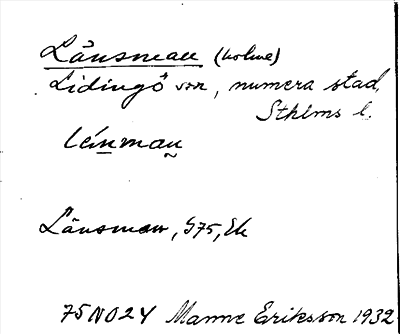 Länsman (holme)
Lidingö sn, numera stad,
Sthlms l.
lénman
Länsman, G75, Ek
75NO24 Manne Eriksson 1932